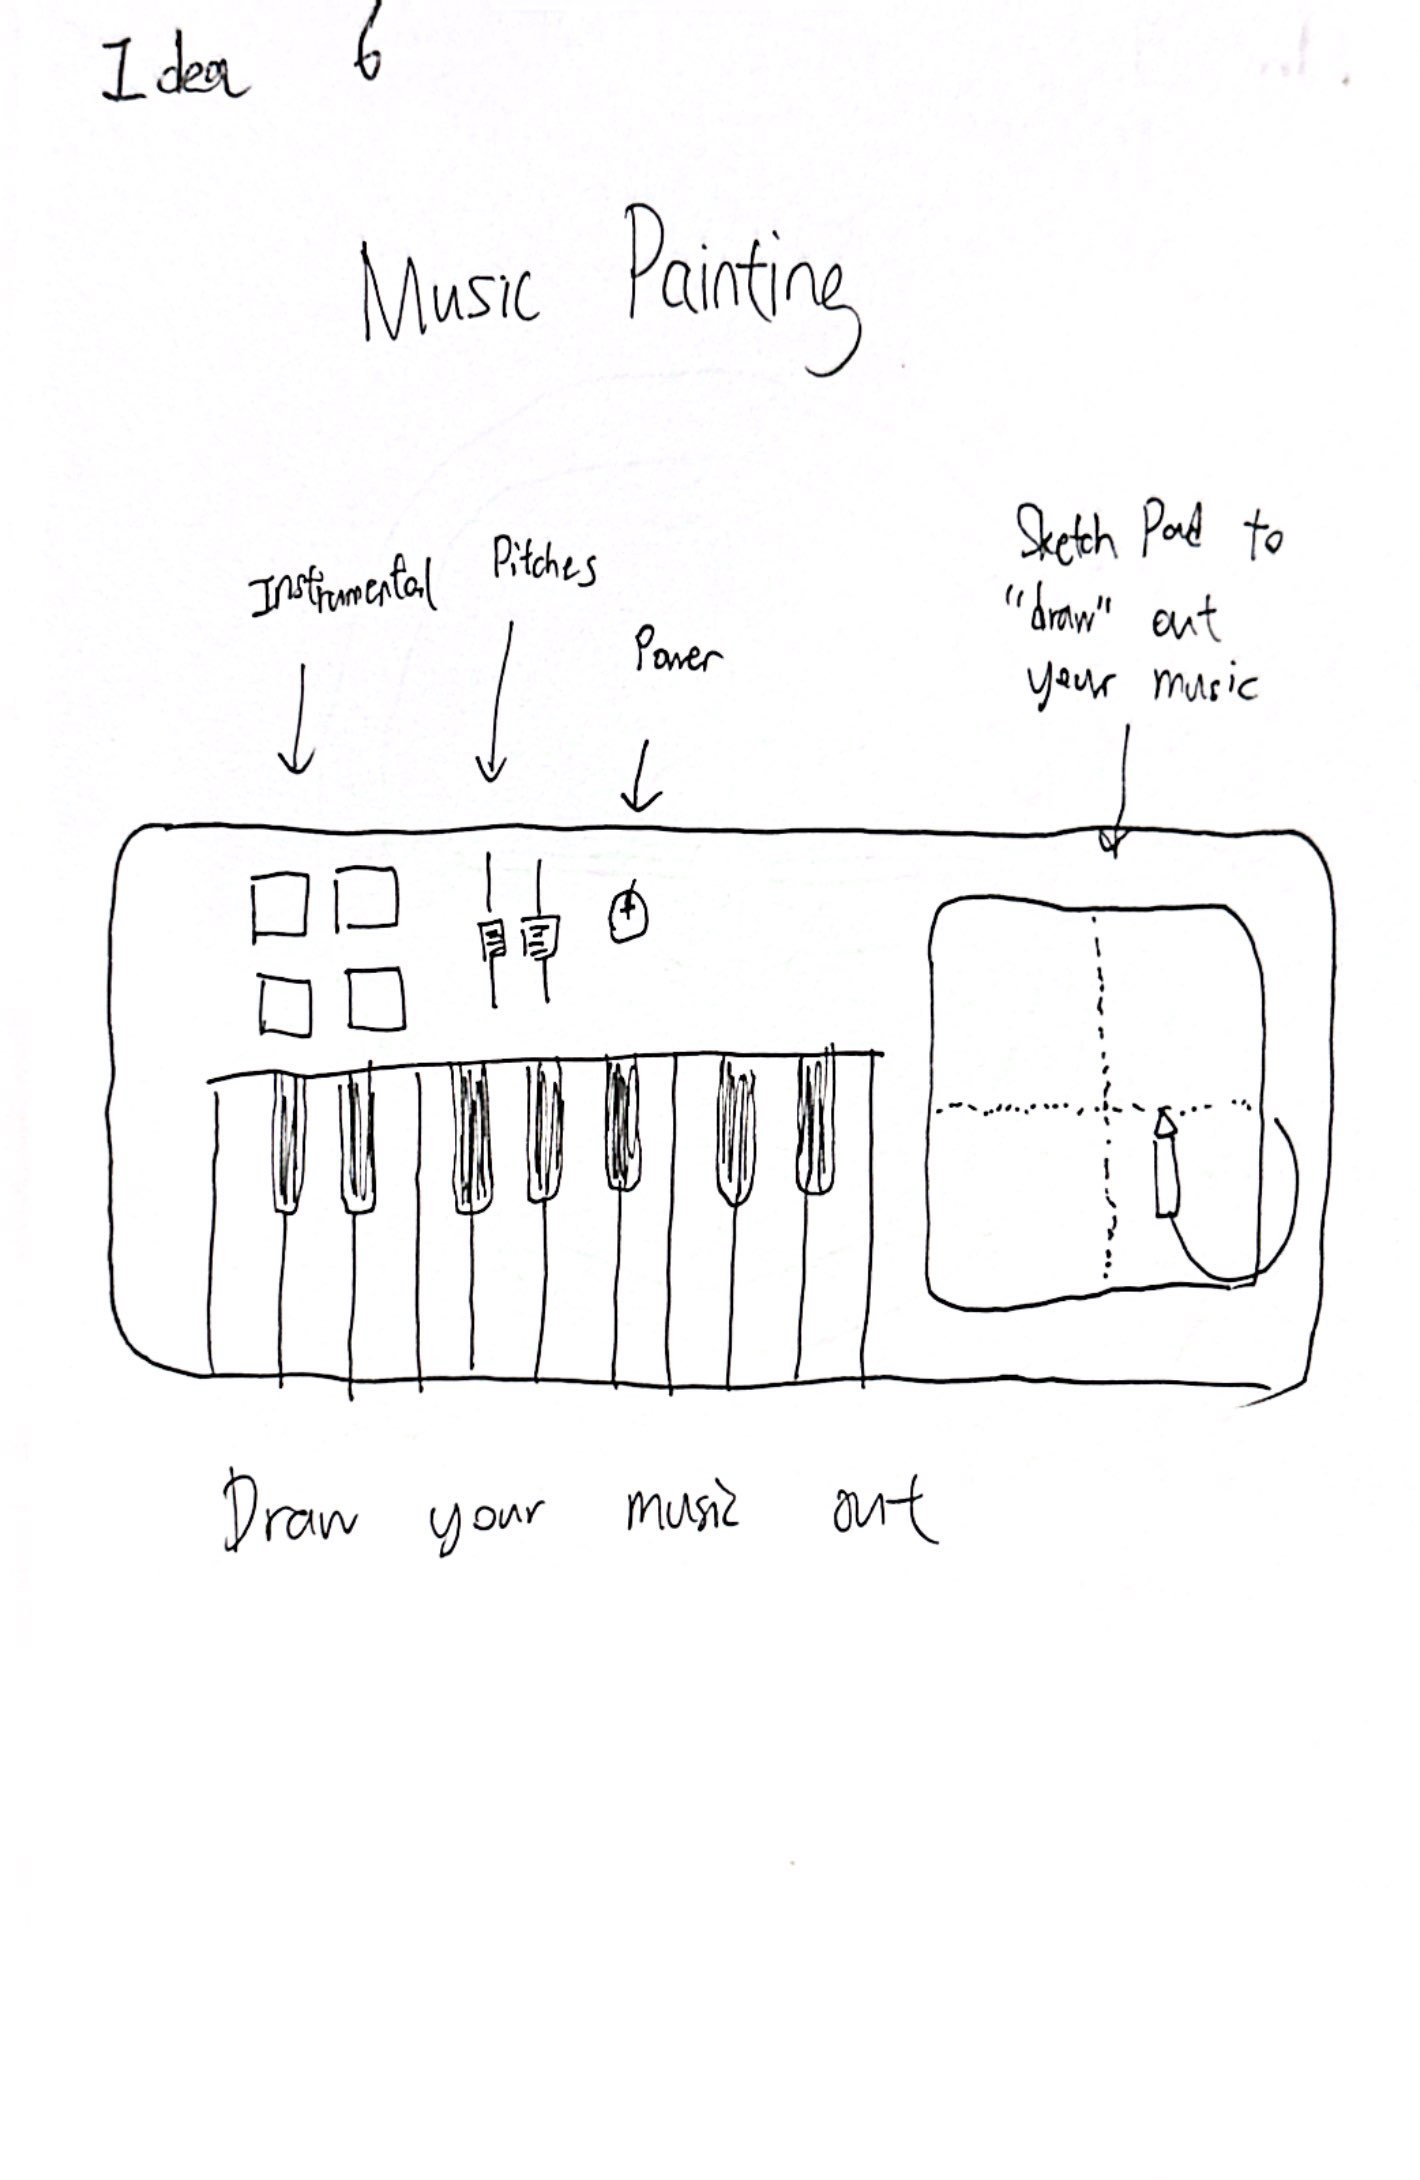 Idea 6
Music Painting
Instrumental
Pitches
Power
Sketch Pad to
"draw" out
your music
Draw your music out